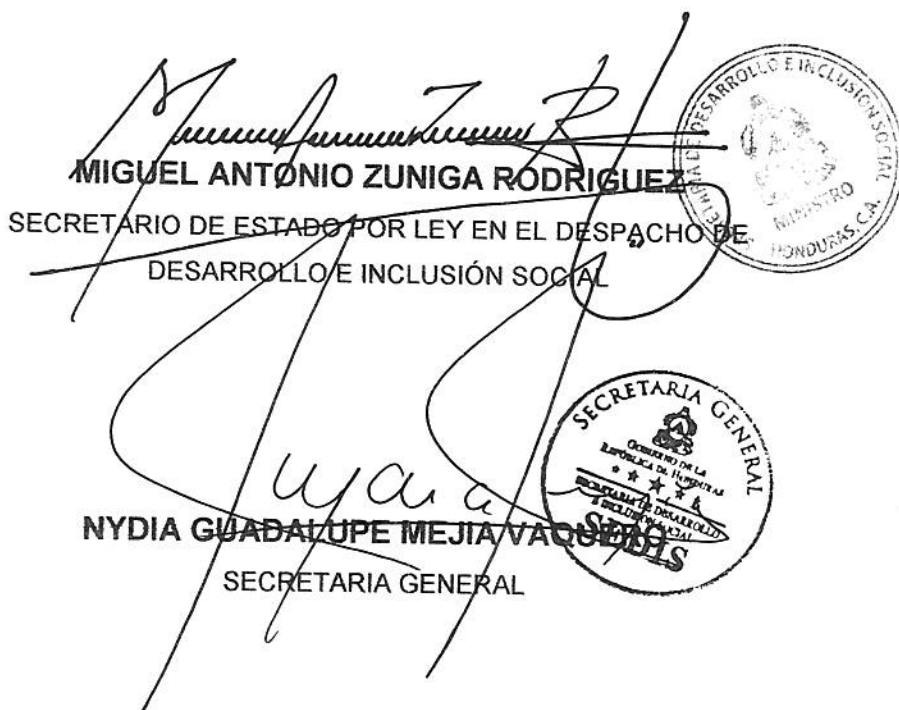 MIGUEL ANTONIO ZUNIGA RODRIGUEZ
SECRETARIO DE ESTADO POR LEY EN EL DESPACHO DE
DESARROLLO E INCLUSIÓN SOCIAL
DESARROLLO E INCLUSION SOCIAL
MINISTRO
HONDURAS, C.A.
NYDIA GUADALUPE MEJIA VAQUEDANO
SECRETARIA GENERAL
SECRETARIA GENERAL
GOBIERNO DE LA
REPÚBLICA DE HONDURAS
SECRETARIA DE DESARROLLO
E INCLUSION SOCIAL
SEDIS